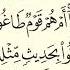 أَمْ هُمْ قَوْمٌ طَاغُو
وا بِحَدِيثٍ مِّثْلِهِ